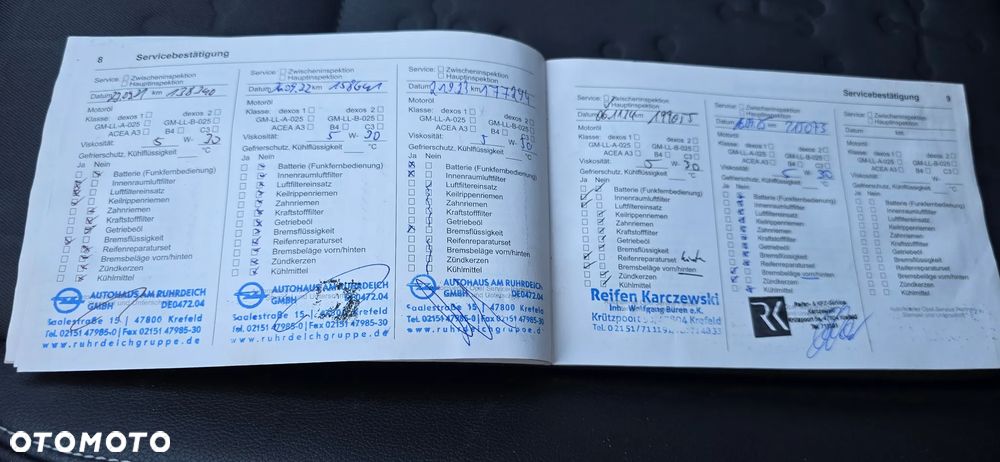 8 Servicebestätigung
Service: Zwischeninspektion
Hauptinspektion
Datum 138240 km
Motoröl
Klasse: dexos 1 dexos 2
GM-LL-A-025 GM-LL-B-025
ACEA A3 B4 C3
Viskosität: 5 W- 30
Gefrierschutz, Kühlflüssigkeit °C
Ja Nein
Batterie (Funkfernbedienung)
Innenraumluftfilter
Luftfiltereinsatz
Keilrippenriemen
Zahnriemen
Kraftstofffilter
Getriebeöl
Bremsflüssigkeit
Reifenreparaturset
Bremsbeläge vorn/hinten
Zündkerzen
Kühlmittel
AUTOHAUS AM RUHRDEICH
GMBH DE0472.04
Saalestraße 15 | 47800 Krefeld
Tel. 02151 47985-0 | Fax 02151 47985-30
www.ruhrdeichgruppe.de
Service: Zwischeninspektion
Hauptinspektion
Datum km 158641
Motoröl
Klasse: dexos 1 dexos 2
GM-LL-A-025 GM-LL-B-025
ACEA A3 B4 C3
Viskosität: 5 W- 30
Gefrierschutz, Kühlflüssigkeit °C
Ja Nein
Batterie (Funkfernbedienung)
Innenraumluftfilter
Luftfiltereinsatz
Keilrippenriemen
Zahnriemen
Kraftstofffilter
Getriebeöl
Bremsflüssigkeit
Reifenreparaturset
Bremsbeläge vorn/hinten
Zündkerzen
Kühlmittel
AUTOHAUS AM RUHRDEICH
GMBH DE0472.04
Saalestraße 15 | 47800 Krefeld
Tel. 02151 47985-0 | Fax 02151 47985-30
www.ruhrdeichgruppe.de
Service: Zwischeninspektion
Hauptinspektion
Datum 21.9.23 km 177294
Motoröl
Klasse: dexos 1 dexos 2
GM-LL-A-025 GM-LL-B-025
ACEA A3 B4 C3
Viskosität: 5 W- 30
Gefrierschutz, Kühlflüssigkeit °C
Ja Nein
Batterie (Funkfernbedienung)
Innenraumluftfilter
Luftfiltereinsatz
Keilrippenriemen
Zahnriemen
Kraftstofffilter
Getriebeöl
Bremsflüssigkeit
Reifenreparaturset
Bremsbeläge vorn/hinten
Zündkerzen
Kühlmittel
AUTOHAUS AM RUHRDEICH
GMBH DE0472.04
Saalestraße 15 | 47800 Krefeld
Tel. 02151 47985-0 | Fax 02151 47985-30
www.ruhrdeichgruppe.de
Servicebestätigung 9
Service: Zwischeninspektion
Hauptinspektion
Datum km
Motoröl
Klasse: dexos 1 dexos 2
GM-LL-A-025 GM-LL-B-025
ACEA A3 B4 C3
Viskosität: 5 W- 30
Gefrierschutz, Kühlflüssigkeit °C
Ja Nein
Batterie (Funkfernbedienung)
Innenraumluftfilter
Luftfiltereinsatz
Keilrippenriemen
Zahnriemen
Kraftstofffilter
Getriebeöl
Bremsflüssigkeit
Reifenreparaturset
Bremsbeläge vorn/hinten
Zündkerzen
Kühlmittel
Reifen Karczewski
Inh. Wolfgang Büren e.K.
Krützpoort 47804 Krefeld
Service: Zwischeninspektion
Hauptinspektion
Datum km
Motoröl
Klasse: dexos 1 dexos 2
GM-LL-A-025 GM-LL-B-025
ACEA A3 B4 C3
Viskosität: 5 W- 30
Gefrierschutz, Kühlflüssigkeit °C
Ja Nein
Batterie (Funkfernbedienung)
Innenraumluftfilter
Luftfiltereinsatz
Keilrippenriemen
Zahnriemen
Kraftstofffilter
Getriebeöl
Bremsflüssigkeit
Reifenreparaturset
Bremsbeläge vorn/hinten
Zündkerzen
Kühlmittel
RK
Reifen- & KFZ-Service
Karczewski
Service: Zwischeninspektion
Hauptinspektion
Datum km
Motoröl
Klasse: dexos 1 dexos 2
GM-LL-A-025 GM-LL-B-025
ACEA A3 B4 C3
Viskosität: W-
Gefrierschutz, Kühlflüssigkeit °C
Ja Nein
Batterie (Funkfernbedienung)
Innenraumluftfilter
Luftfiltereinsatz
Keilrippenriemen
Zahnriemen
Kraftstofffilter
Getriebeöl
Bremsflüssigkeit
Reifenreparaturset
Bremsbeläge vorn/hinten
Zündkerzen
Kühlmittel
OTOMOTO